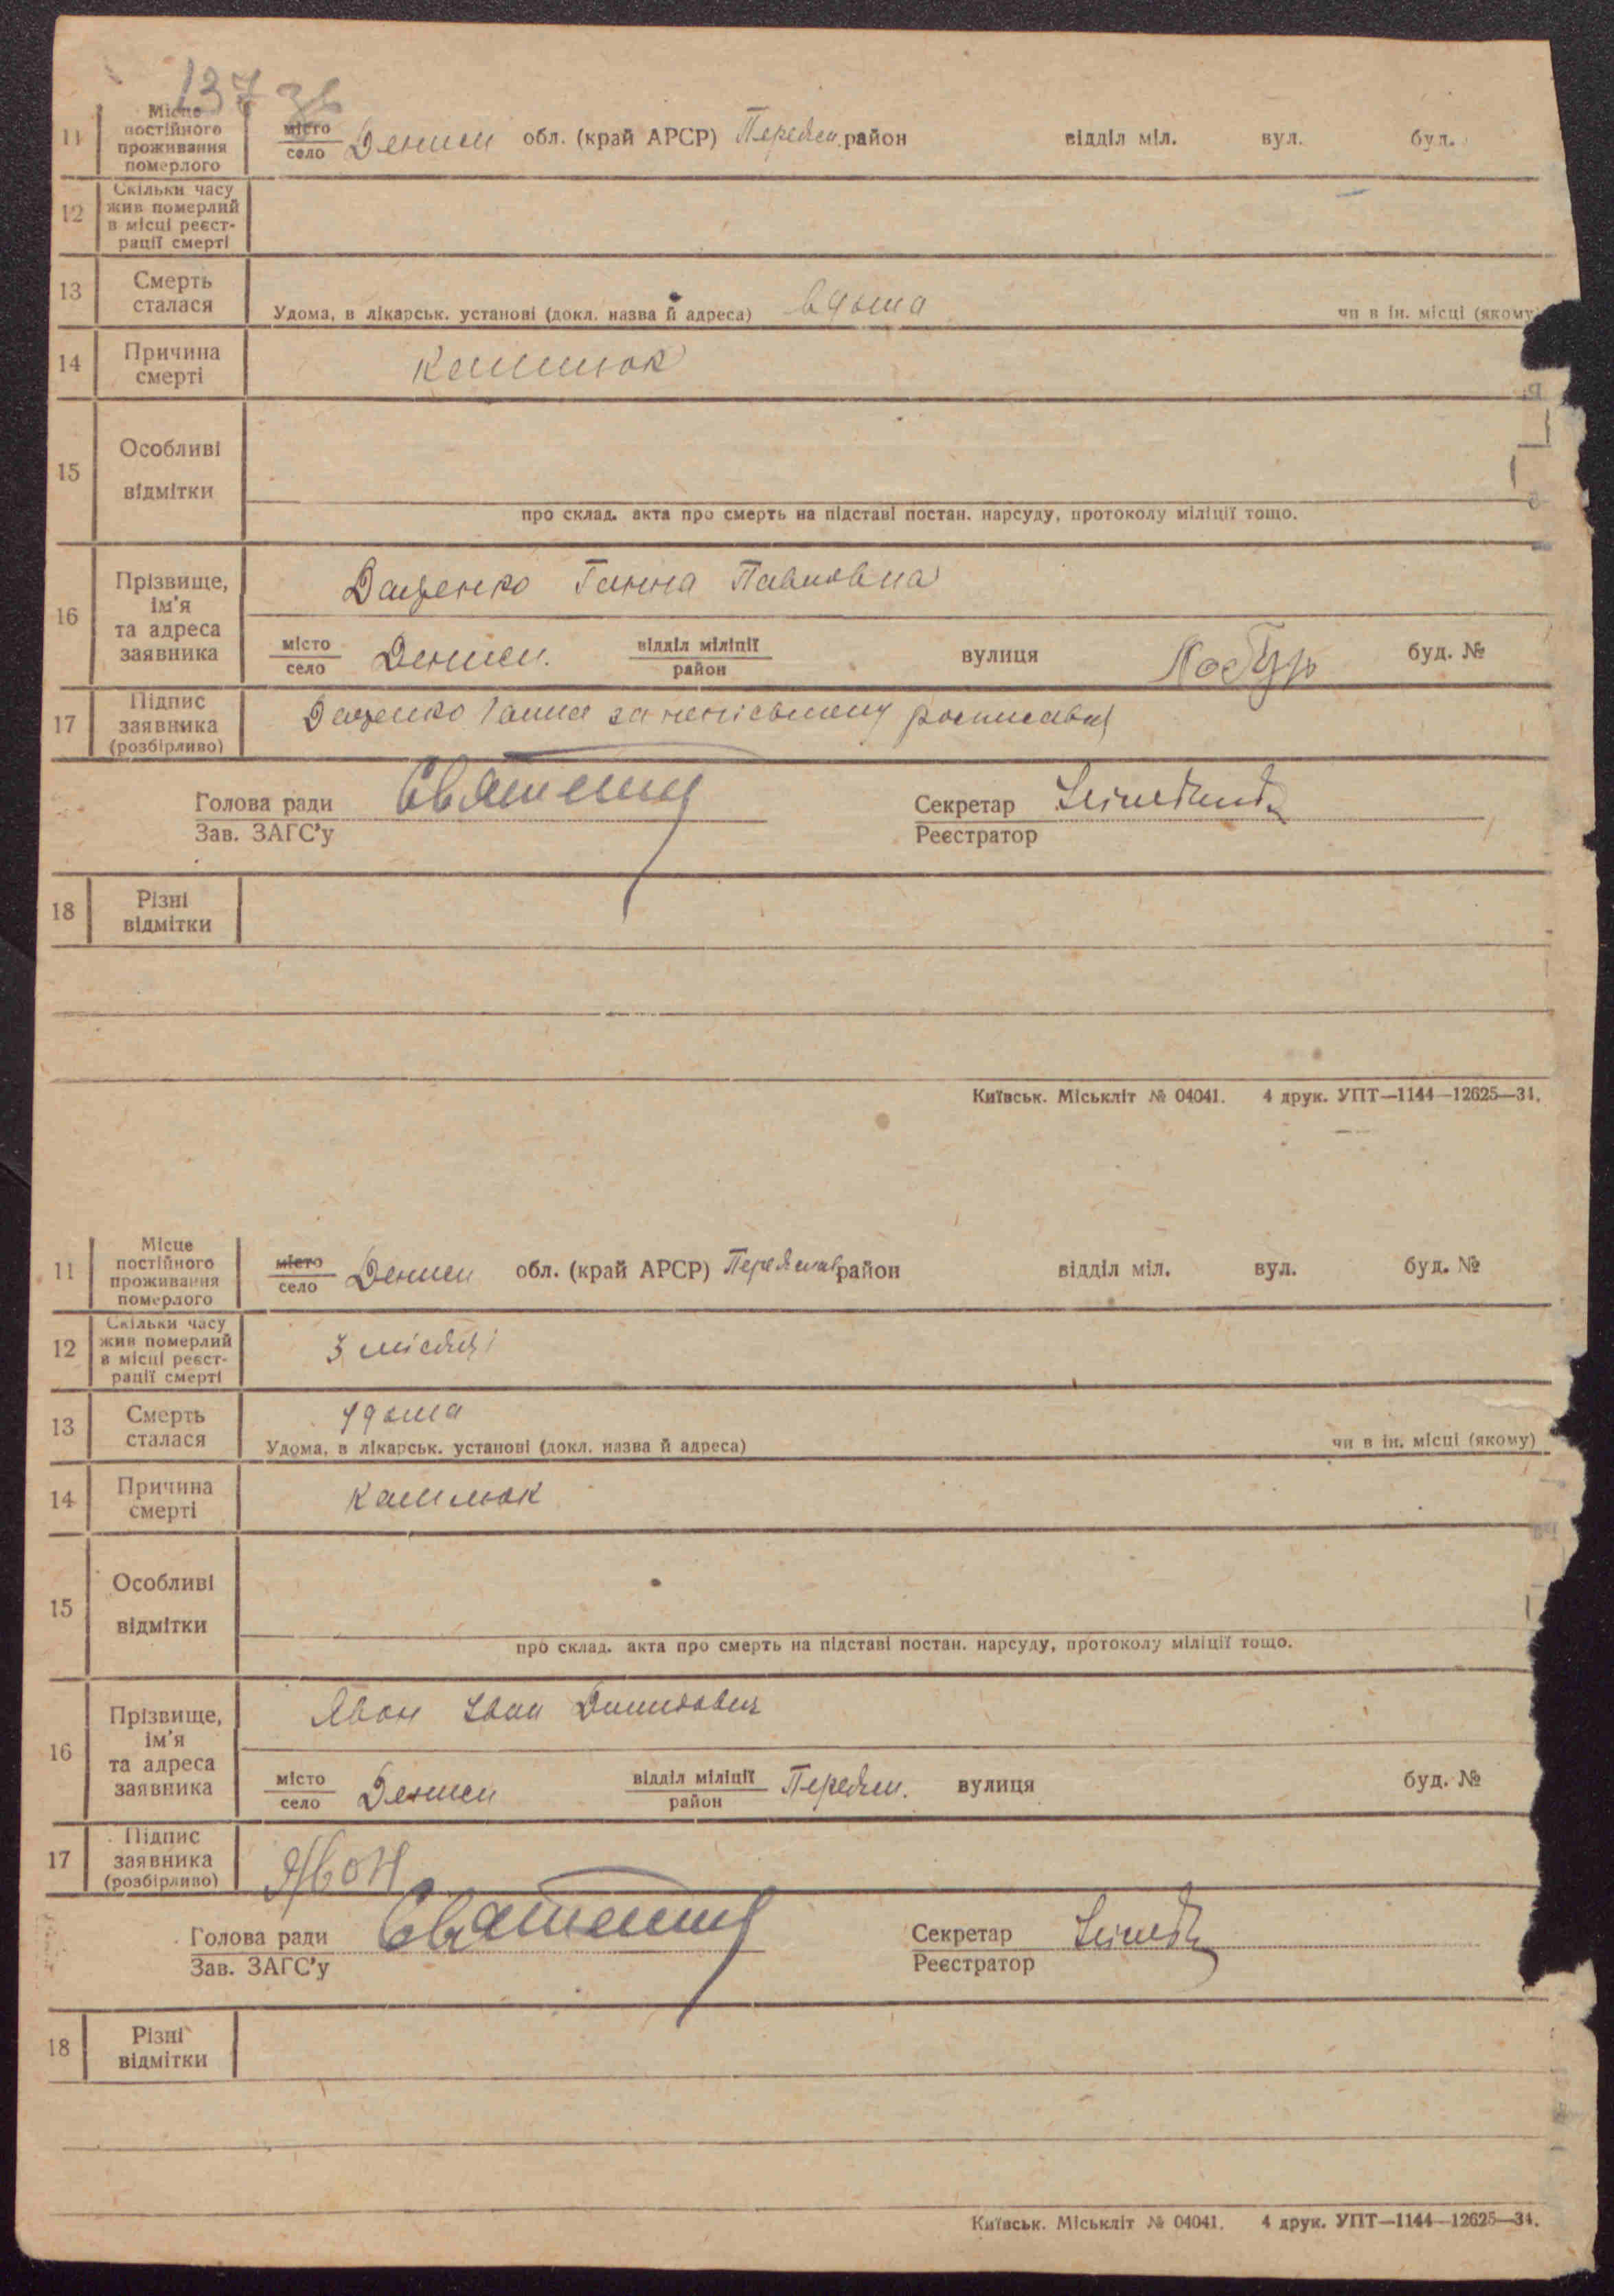 137 зв
11 Місце постійного проживання померлого місто село Дениси обл. (край АРСР) Переясл. район відділ міл. вул. буд.
12 Скільки часу жив померлий в місці реєстрації смерті
13 Смерть сталася Удома, в лікарськ. установі (докл. назва й адреса) вдома чи в ін. місці (якому)
14 Причина смерті Кашлюк
15 Особливі відмітки
про склад. акта про смерть на підставі постан. нарсуду, протоколу міліції тощо.
16 Прізвище, ім'я та адреса заявника Даценко Ганна Павловна
місто село Дениси. відділ міліції район вулиця буд. №
17 Підпис заявника (розбірливо) Даценко Ганна за росписавця
Голова ради Зав. ЗАГС'у Секретар Реєстратор
18 Різні відмітки
Київськ. Міськліт № 04041. 4 друк. УПТ—1144—12625—34.
11 Місце постійного проживання померлого місто село Дениси обл. (край АРСР) Переяслав район відділ міл. вул. буд. №
12 Скільки часу жив померлий в місці реєстрації смерті 3 місяці
13 Смерть сталася удома
Удома, в лікарськ. установі (докл. назва й адреса) чи в ін. місці (якому)
14 Причина смерті Кашлюк
15 Особливі відмітки
про склад. акта про смерть на підставі постан. нарсуду, протоколу міліції тощо.
16 Прізвище, ім'я та адреса заявника Явон Іван Демидович
місто село Дениси відділ міліції район Переясл. вулиця буд. №
17 Підпис заявника (розбірливо) Явон
Голова ради Зав. ЗАГС'у Секретар Реєстратор
18 Різні відмітки
Київськ. Міськліт № 04041. 4 друк. УПТ—1144—12625—34.